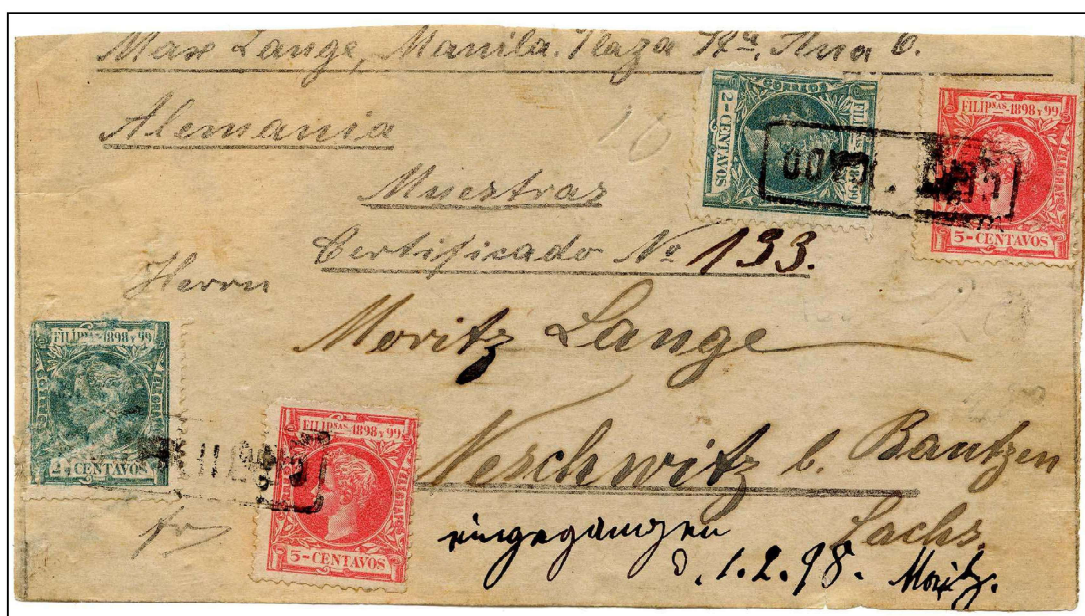 Max Lange, Manila. Plaza Sta. Ana 6.
Alemania
Muestras
Certificado No 133.
Herrn
Moritz Lange
Neschwitz b. Bautzen
Sachs.
eingegangen
d. 1.2.98. Moritz.
CORREOS
FILIPNAS-1898 Y 99
2-CENTAVOS
FILIPNAS-1898 Y 99
5-CENTAVOS
FILIPNAS-1898 Y 99
CENTAVOS
FILIPNAS-1898 Y 99
TELEGRAFOS
5-CENTAVOS